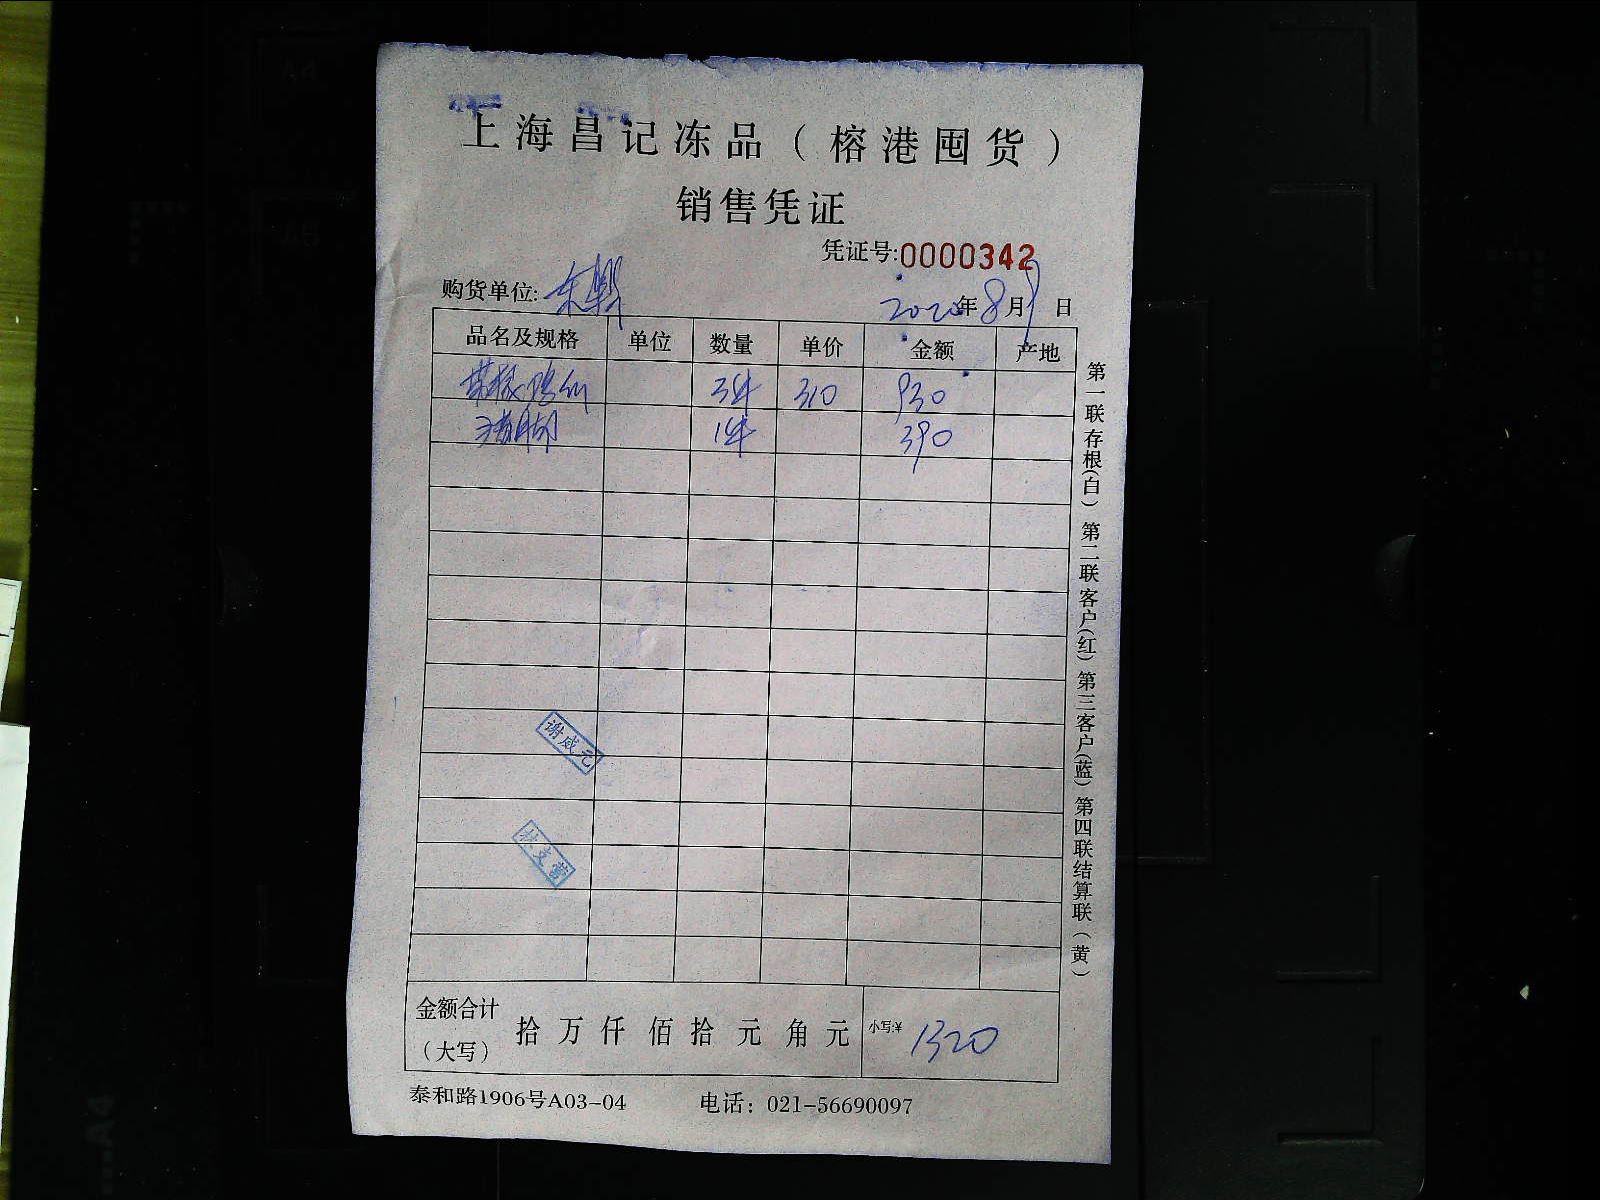 上海昌记冻品（榕港囤货）
销售凭证
凭证号:0000342
购货单位:
2020年8月9日
品名及规格 单位 数量 单价 金额 产地
3件 310 930
猪脚 1件 390
谢咸元
林支营
金额合计（大写） 拾 万 仟 佰 拾 元 角 元 小写:¥ 1320
泰和路1906号A03-04 电话：021-56690097
第一联存根(白) 第二联客户(红) 第三客户(蓝) 第四联结算联(黄)